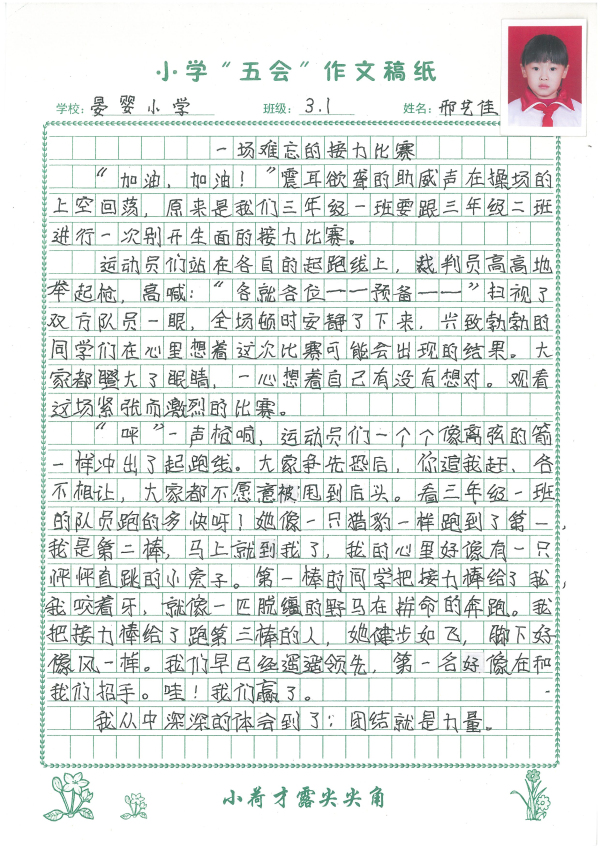 小学“五会”作文稿纸
学校：晏婴小学 班级：3.1 姓名：邢艺佳
一场难忘的接力比赛
“加油，加油！”震耳欲聋的助威声在操场的
上空回荡，原来是我们三年级一班要跟三年级二班
进行一次别开生面的接力比赛。
运动员们站在各自的起跑线上，裁判员高高地
举起枪，高喊：“各就各位——预备——”扫视了
双方队员一眼，全场顿时安静了下来，兴致勃勃的
同学们在心里想着这次比赛可能会出现的结果。大
家都瞪大了眼睛，一心想着自己有没有想对。观看
这场紧张而激烈的比赛。
“呯”一声枪响，运动员们一个个像离弦的箭
一样冲出了起跑线。大家争先恐后，你追我赶、各
不相让，大家都不愿意被甩到后头。看三年级一班
的队员跑的多快呀！她像一只猎豹一样跑到了第一，
我是第二棒，马上就到我了，我的心里好像有一只
怦怦直跳的小兔子。第一棒的同学把接力棒给了我，
我咬着牙，就像一匹脱缰的野马在拼命的奔跑。我
把接力棒给了跑第三棒的人，她健步如飞，脚下好
像风一样。我们早已经遥遥领先，第一名好像在和
我们招手。哇！我们赢了。
我从中深深的体会到了：团结就是力量。
小荷才露尖尖角